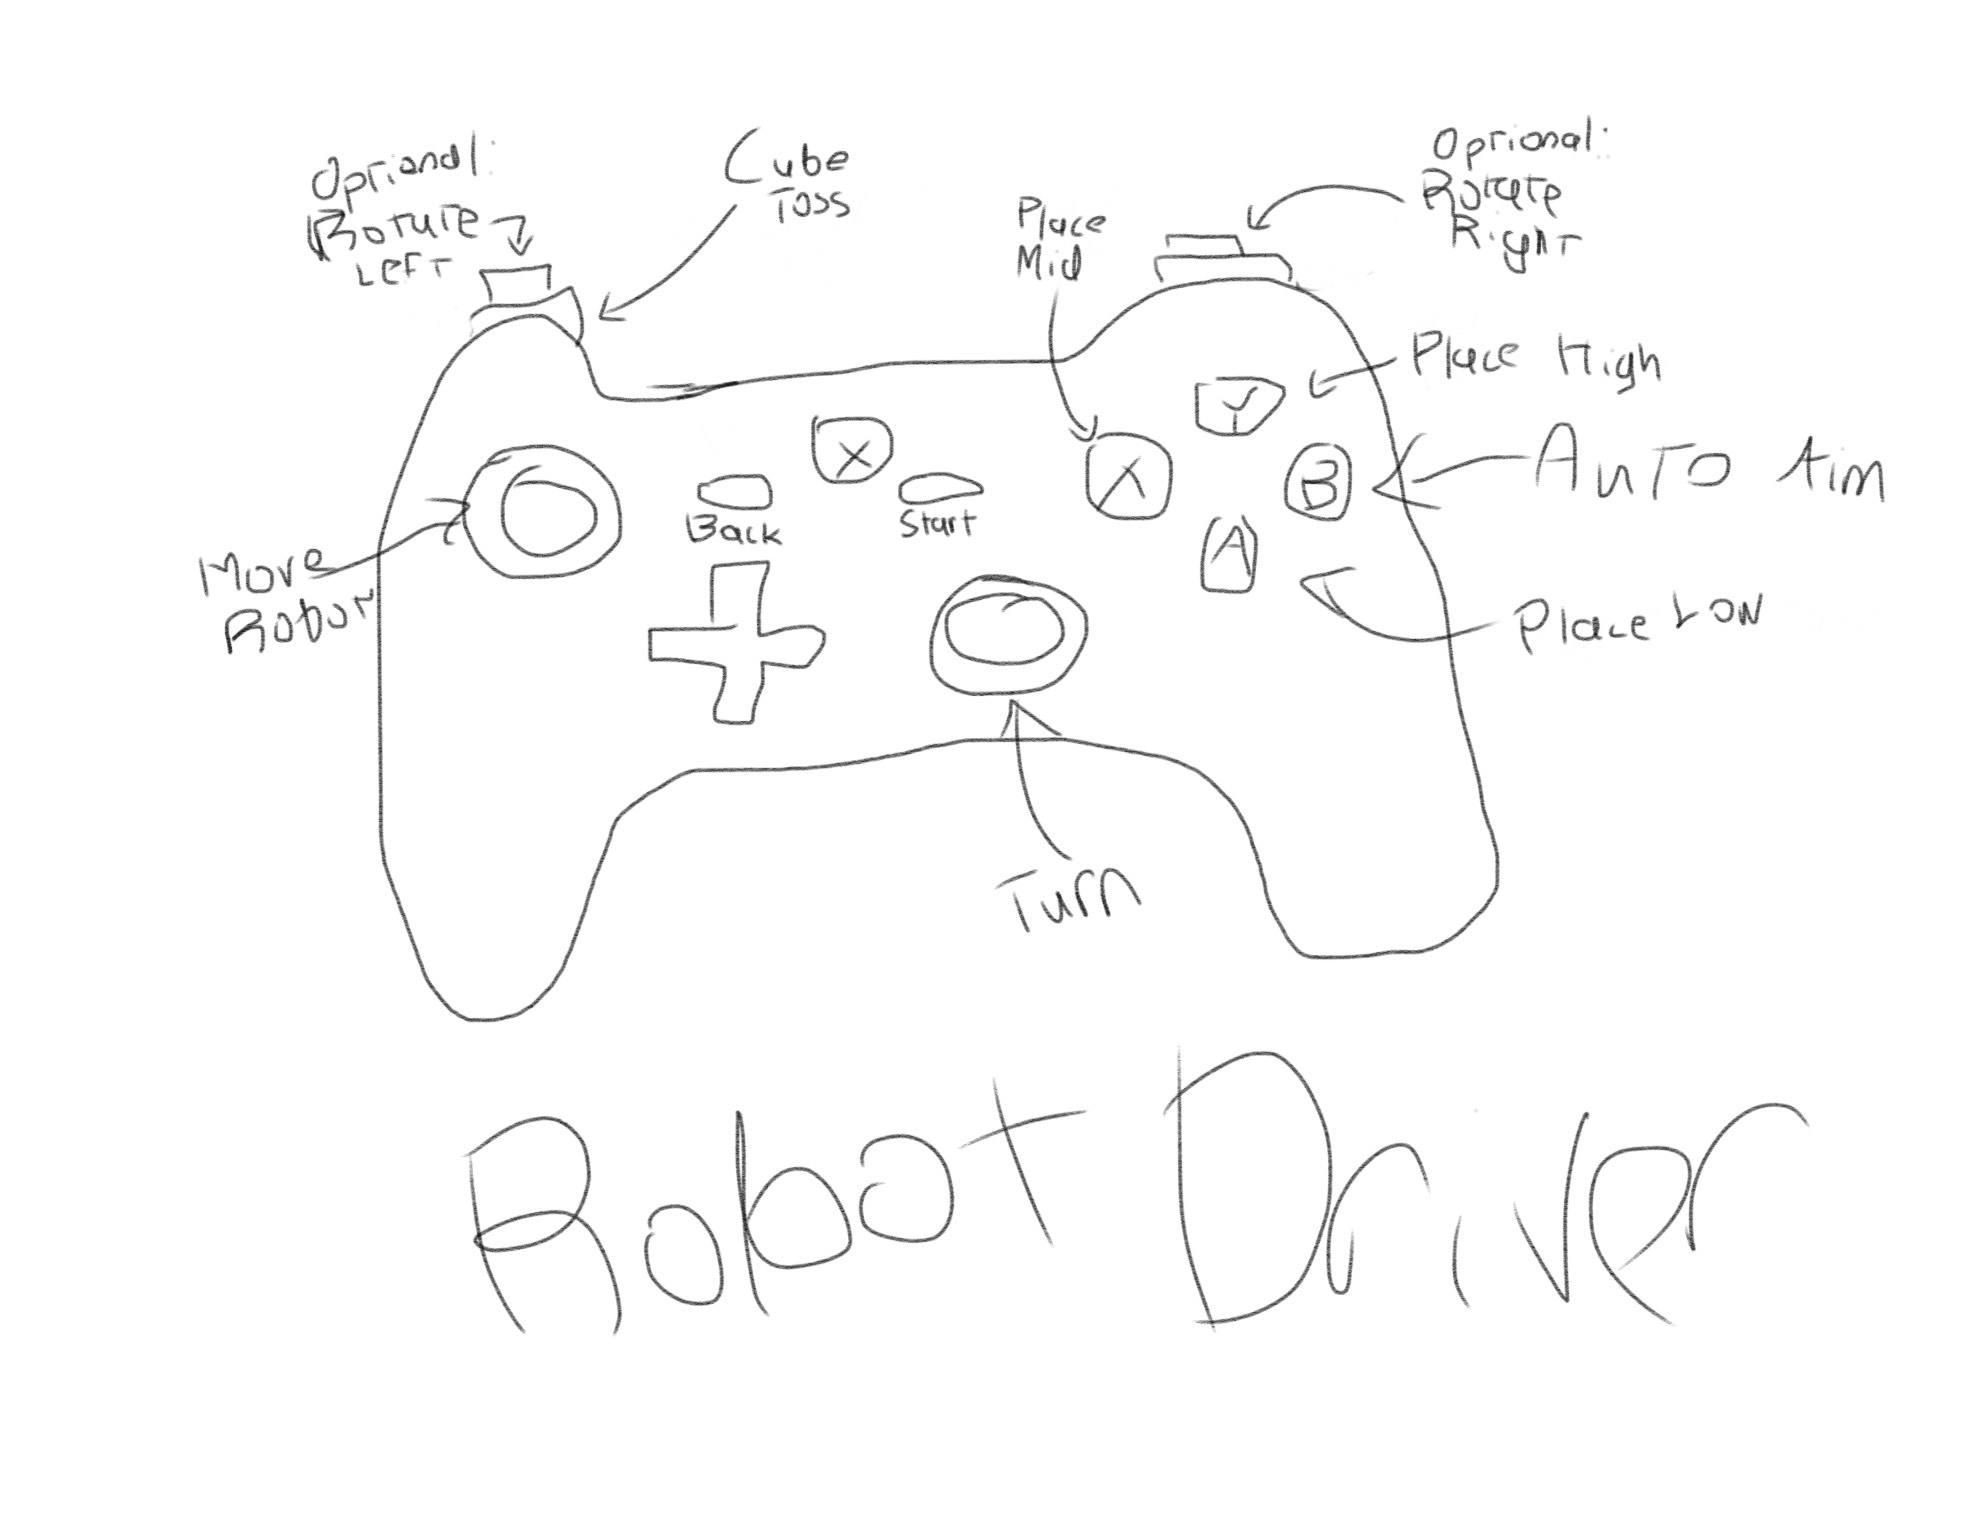 Optional:
Rotate
Left
Cube
Toss
Place
Mid
Optional:
Rotate
Right
Place High
Y
X
X
B
Auto Aim
Back
Start
A
Move
Robot
Place Low
Turn
Robot Driver